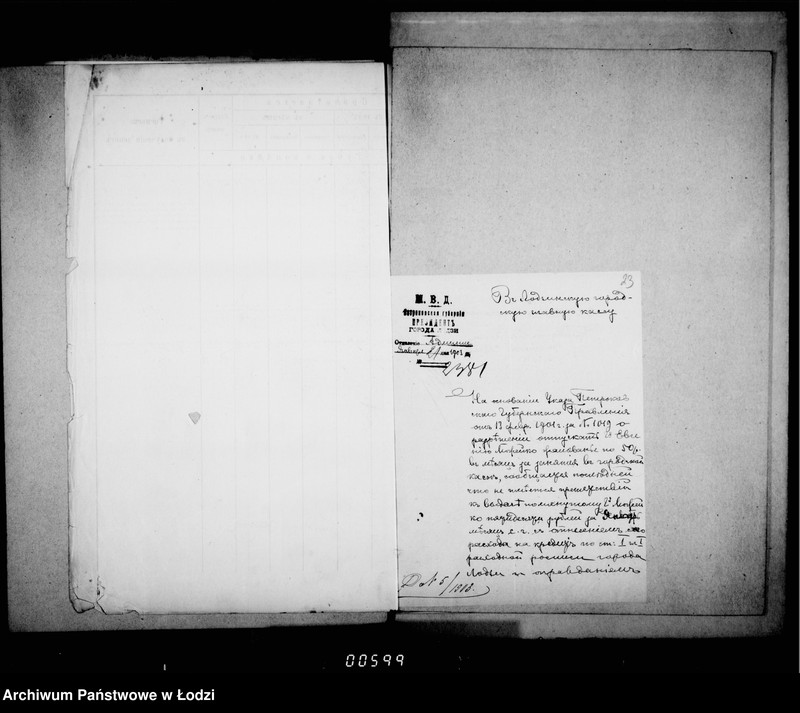 23
М. В. Д.
Петроковской губерніи
ПРЕЗИДЕНТЪ
ГОРОДА ЛОДЗИ
Отдѣленіе Админ
Января 21 дня 1903 г.
№
2381
Въ Лодзинскую город-
скую главную кассу
На основаніи Указа Петроков
скаго Губернскаго Правленія
отъ 13 февр 1901 г. за № 1019 о
разрѣшеніи отпускать Евге
нію жалованье по 50 р
въ мѣсяцъ за занятія въ городской
кассѣ, сообщается последней
что не имѣется препятствій
къ выдачѣ помянутому
ко пятьдесяти рублей за Январь
мѣсяцъ с. г. съ отнесеніемъ
расхода на кредитъ по ст: I
расходной росписи города
Лодзи и оправданіемъ
Д № 5/1903.
00599
Archiwum Państwowe w Łodzi